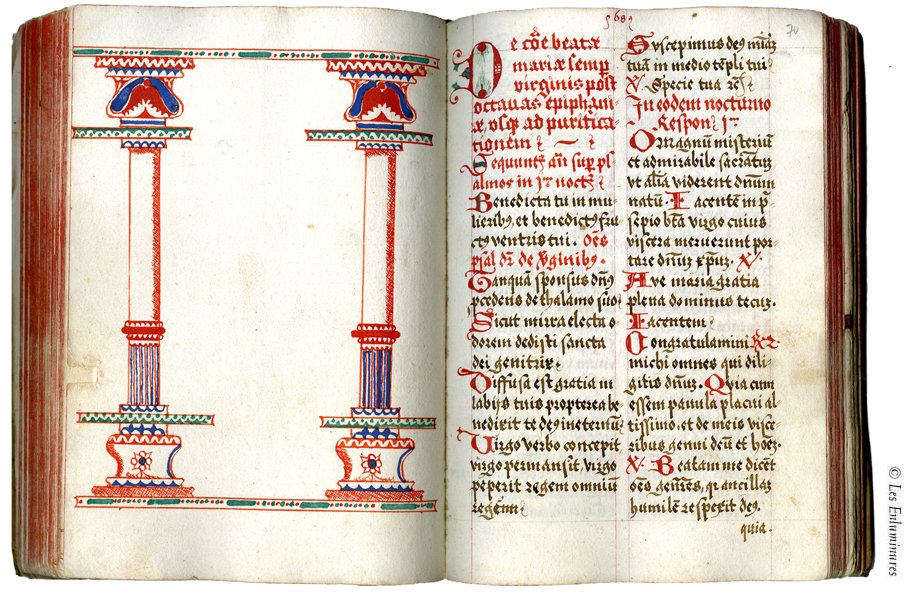 68
70
De cõe beatæ
mariæ semp
virginis post
octauas epiphani
æ, vsq ad purifica
tionem
Sequunt añ sup ps
almos in 1º noct
Benedicta tu in mu
lieribus, et benedictus fru
ctus ventris tui. Oẽs
psal dr de Vginibus.
Tanquã sponsus dñs
pcedens de thalamo suo
Sicut mirra electa o
dorem dedisti sancta
dei genitrix
Diffusa est gratia in
labijs tuis propterea be
nedixit te deus in eternũ
Virgo verbo concepit
virgo permansit, virgo
peperit regem omniũ
regem
Suscepimus deus miãz
tuã in medio tẽpli tui
V. Specie tua
In eodem nocturno
Respon. 1º
O magnũ misteriũ
et admirabile sacratũ
vt alia viderent dñum
natũ. Iacentem in p
sepio bta virgo cuius
viscera meruerunt por
tare dñum xpũz. V.
Ave maria gratia
plena dominus tecuz.
Iacentem
Congratulamini R 2.
michi omnes qui dili
gitis dñuz. Quia cum
essem parvula placui al
tissimo, et de meis visce
ribus genui deũ et hoẽz.
V. Beatam me dicẽt
oẽs genẽs, q ancillaz
humilẽ respexit deus.
quia.
© Les Enluminures